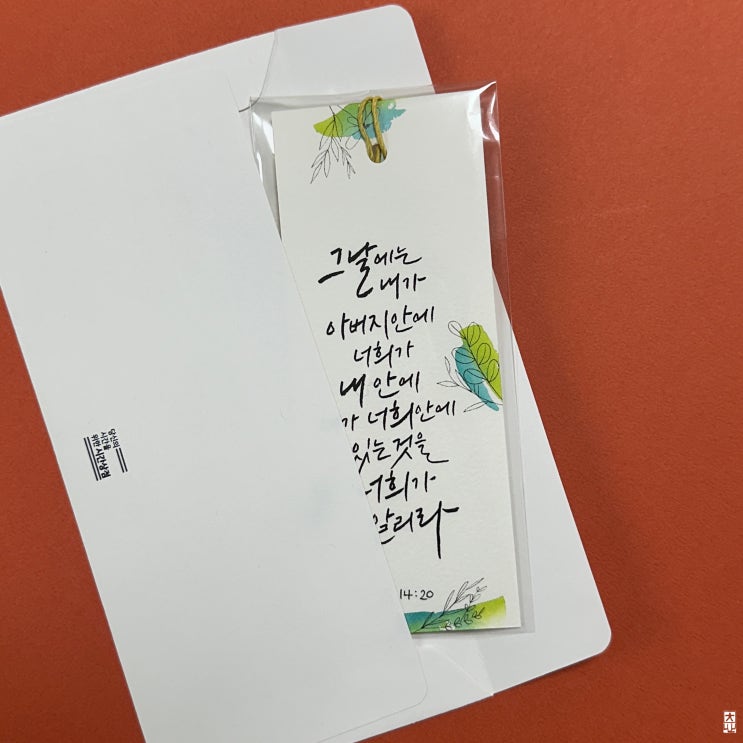 그날에는
내가
아버지안에
너희가
내 안에
가 너희안에
있는것을
너희가
알리라
14:20
당신의
시간을